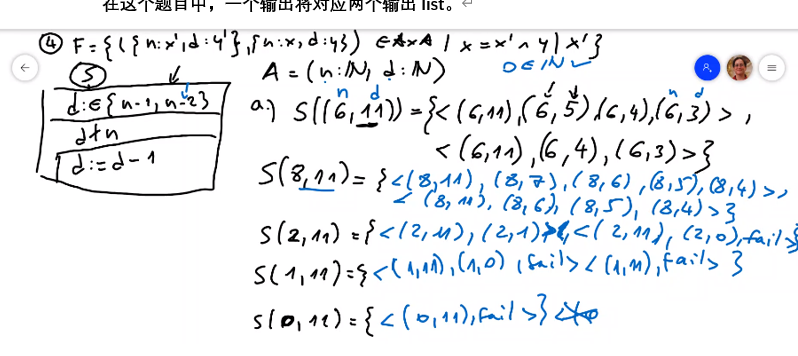 在这个题目中，一个输出将对应两个输出 list。
④ F={({n:x',d:y'},{n:x,d:y}) ∈A×A | x=x' ∧ y|x'}
A=(n:ℕ, d:ℕ) 0∈ℕ ✓
S
d:∈{n-1,n-2}
d∤n
d:=d-1
n d n d
a) S((6,11))={<(6,11),(6,5),(6,4),(6,3)>,
<(6,11),(6,4),(6,3)>}
S(8,11)={<(8,11),(8,7),(8,6),(8,5),(8,4)>,
<(8,11),(8,6),(8,5),(8,4)>}
S(2,11)={<(2,11),(2,1)>,<(2,11),(2,0),fail>}
S(1,11)={<(1,11),(1,0),fail><(1,11),fail>}
S(0,11)={<(0,11),fail>}